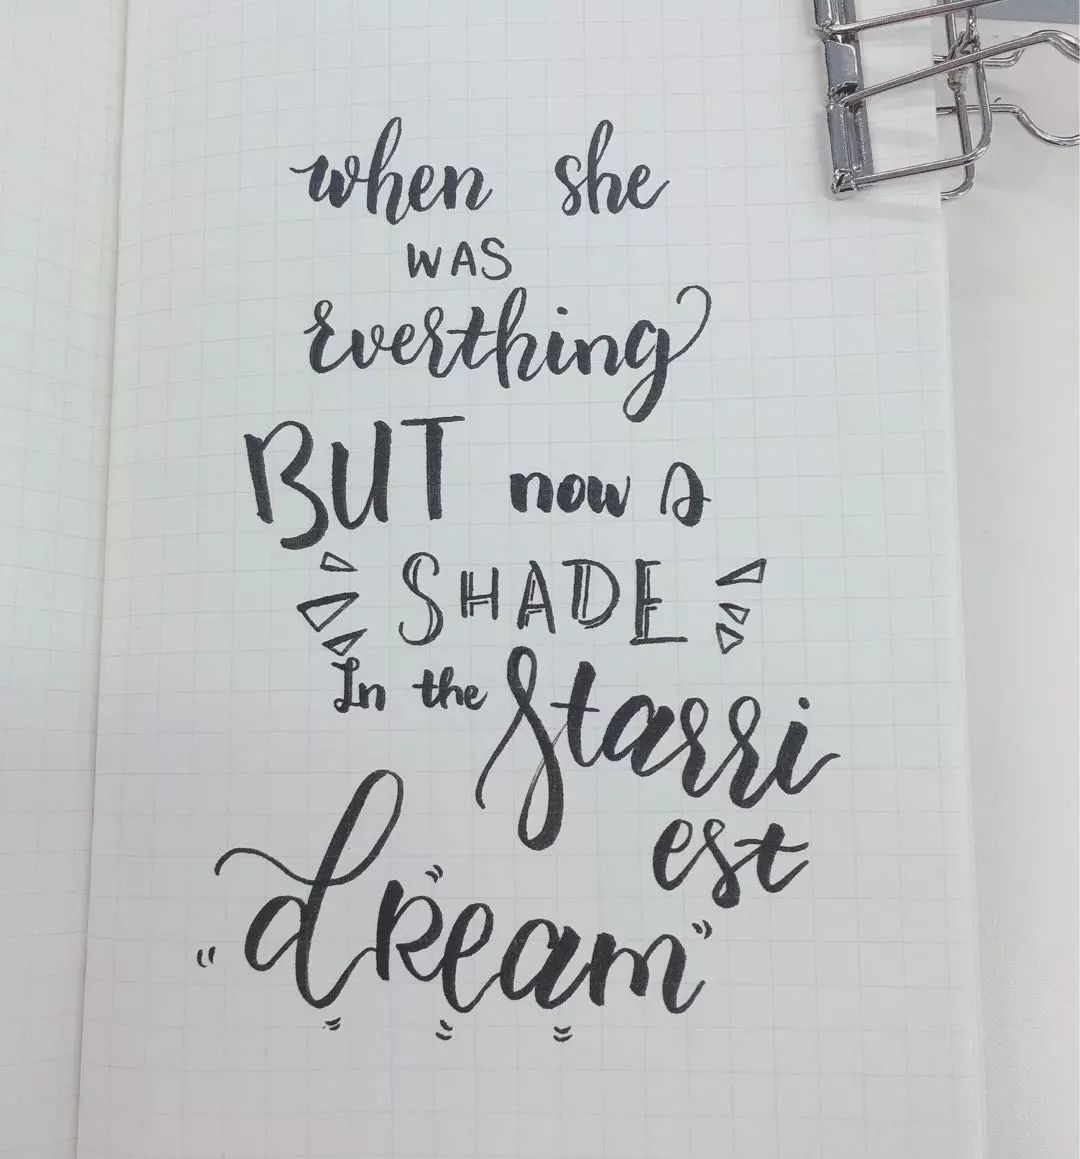 when she
WAS
Everthing
BUT now a
SHADE
In the Starri
est
dream